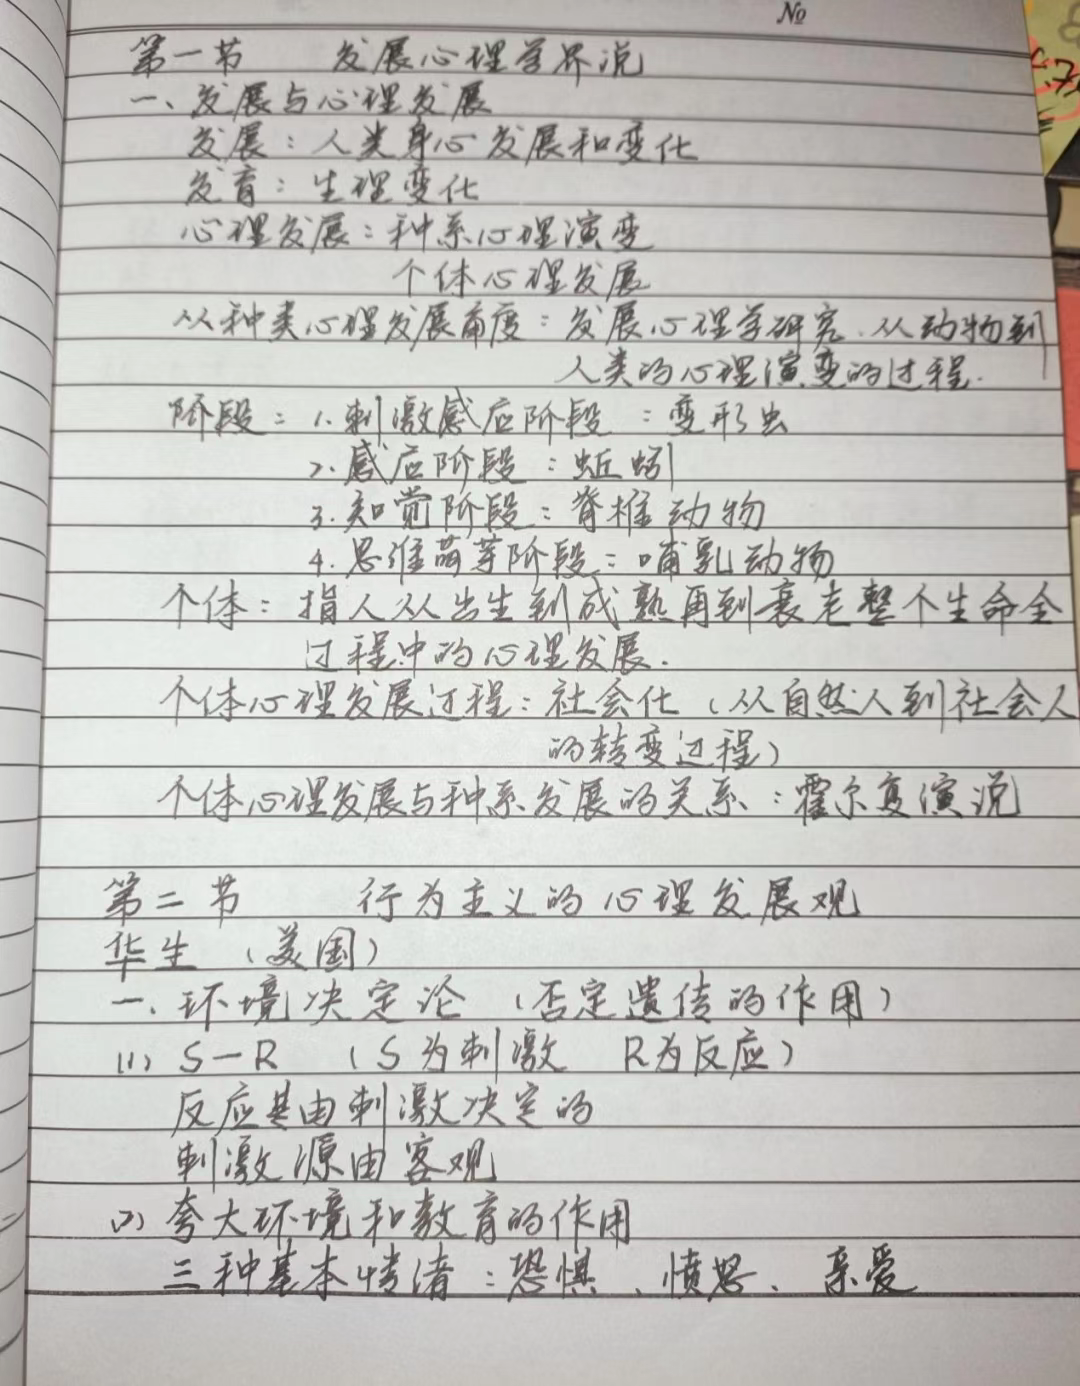 No
第一节 发展心理学界说
一、发展与心理发展
发展：人类身心发展和变化
发育：生理变化
心理发展：种系心理演变
个体心理发展
从种类心理发展角度：发展心理学研究.从动物到
人类的心理演变的过程.
阶段：1.刺激感应阶段：变形虫
2.感应阶段：蚯蚓
3.知觉阶段：脊椎动物
4.思维萌芽阶段：哺乳动物
个体：指人从出生到成熟再到衰老整个生命全
过程中的心理发展.
个体心理发展过程：社会化（从自然人到社会人
的转变过程）
个体心理发展与种系发展的关系：霍尔复演说
第二节 行为主义的心理发展观
华生（美国）
一、环境决定论（否定遗传的作用）
(1) S—R （S为刺激 R为反应）
反应是由刺激决定的
刺激源由客观
(2) 夸大环境和教育的作用
三种基本情绪：恐惧、愤怒、亲爱